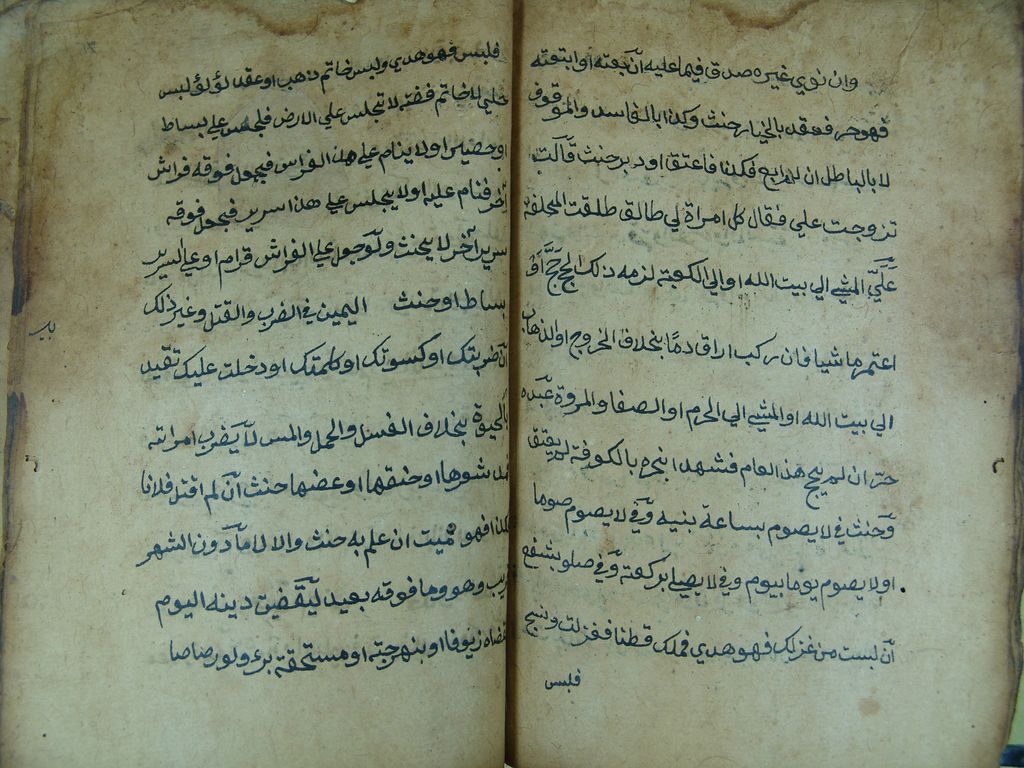 وان نوي غيره صدق فيما عليه ان بعته او ابتعته
فهو حر فعقد بالخيار حنث وكذا بالفاسد والموقوف
لا بالباطل ان لم ابع فكذا فاعتق او دبر حنث قالت
تزوجت علي فقال كل امراة لي طالق طلقت المحلفة
علي المشي الي بيت الله او الي الكعبة لزمه ذلك الحج حج او
اعتمر ماشيا فان ركب اراق دما بخلاف الخروج او الذهاب
الي بيت الله او المشي الي الحرم او الصفا والمروة عبده
حر ان لم يحج هذا العام فشهدا بنحره بالكوفة لم يعتق
وحنث في لا يصوم بساعة بنيه وفي لا يصوم صوما
او لا يصوم يوما بيوم وفي لا يصلي بركعة وفي صلوة بشفع
ان لبست من غزلك فهو هدي فملك قطنا فغزلت ونسج
فلبس
فلبس فهو هدي ولبس خاتم ذهب او عقد لؤلؤ لبس
حلي لا خاتم فضة لا تجلس علي الارض فجلس علي بساط
او حصير او لا ينام علي هذا الفراش فجعل فوقه فراش
آخر فنام عليه او لا يجلس علي هذا سرير فجعل فوقه
سرير آخر لا يحنث ولو جعل علي الفراش قرام او علي السرير
بساط او حنث اليمين في الضرب والقتل وغير ذلك
ان ضربتك او كسوتك او كلمتك او دخلت عليك تقيد
بالحيوة بخلاف الغسل والحمل والمس لا يضرب امراته
فمد شعرها او خنقها او عضها حنث ان لم اقتل فلانا
فكذا فهو ميت ان علم به حنث والا لا ما دون الشهر
قريب وهو وما فوقه بعيد ليقضين دينه اليوم
فقضاه زيوفا او بنهرجة او مستحقة بر ولو رصاصا